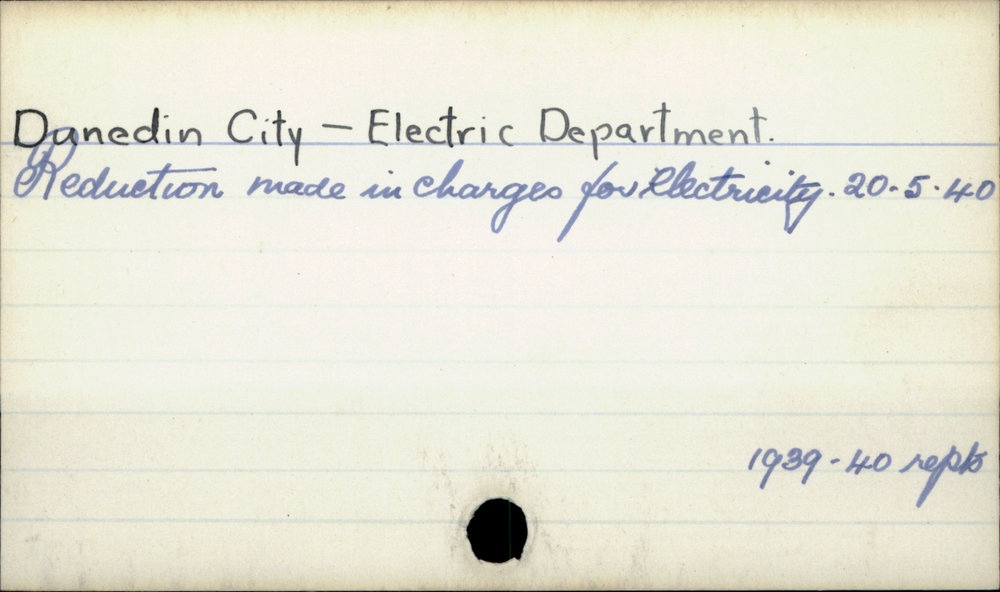 Dunedin City — Electric Department.
Reduction made in charges for electricity. 20.5.40
1939-40 repts